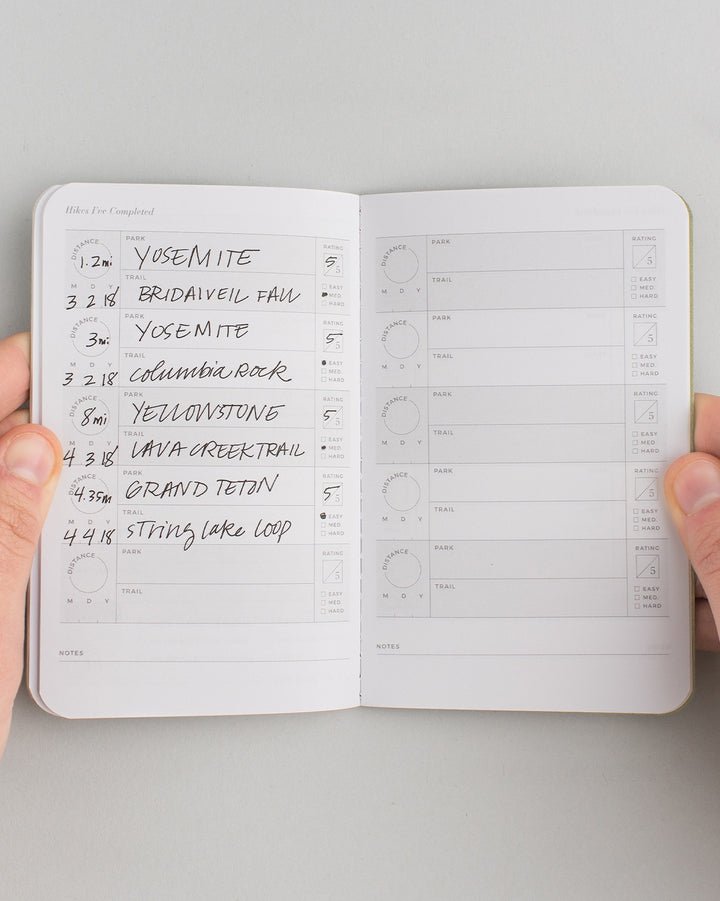 Hikes I've Completed
DISTANCE PARK RATING
1.2mi YOSEMITE 5/5
TRAIL
M D Y EASY
3 2 18 BRIDALVEIL FALL MED.
HARD
DISTANCE PARK RATING
3mi YOSEMITE 5/5
TRAIL
M D Y EASY
3 2 18 Columbia Rock MED.
HARD
DISTANCE PARK RATING
8mi YELLOWSTONE 5/5
TRAIL
M D Y EASY
4 3 18 LAVA CREEK TRAIL MED.
HARD
DISTANCE PARK RATING
4.35m GRAND TETON 5/5
TRAIL
M D Y EASY
4 4 18 String Lake Loop MED.
HARD
DISTANCE PARK RATING
/5
TRAIL
M D Y EASY
MED.
HARD
NOTES
DISTANCE PARK RATING
/5
TRAIL
M D Y EASY
MED.
HARD
DISTANCE PARK RATING
/5
TRAIL
M D Y EASY
MED.
HARD
DISTANCE PARK RATING
/5
TRAIL
M D Y EASY
MED.
HARD
DISTANCE PARK RATING
/5
TRAIL
M D Y EASY
MED.
HARD
DISTANCE PARK RATING
/5
TRAIL
M D Y EASY
MED.
HARD
NOTES